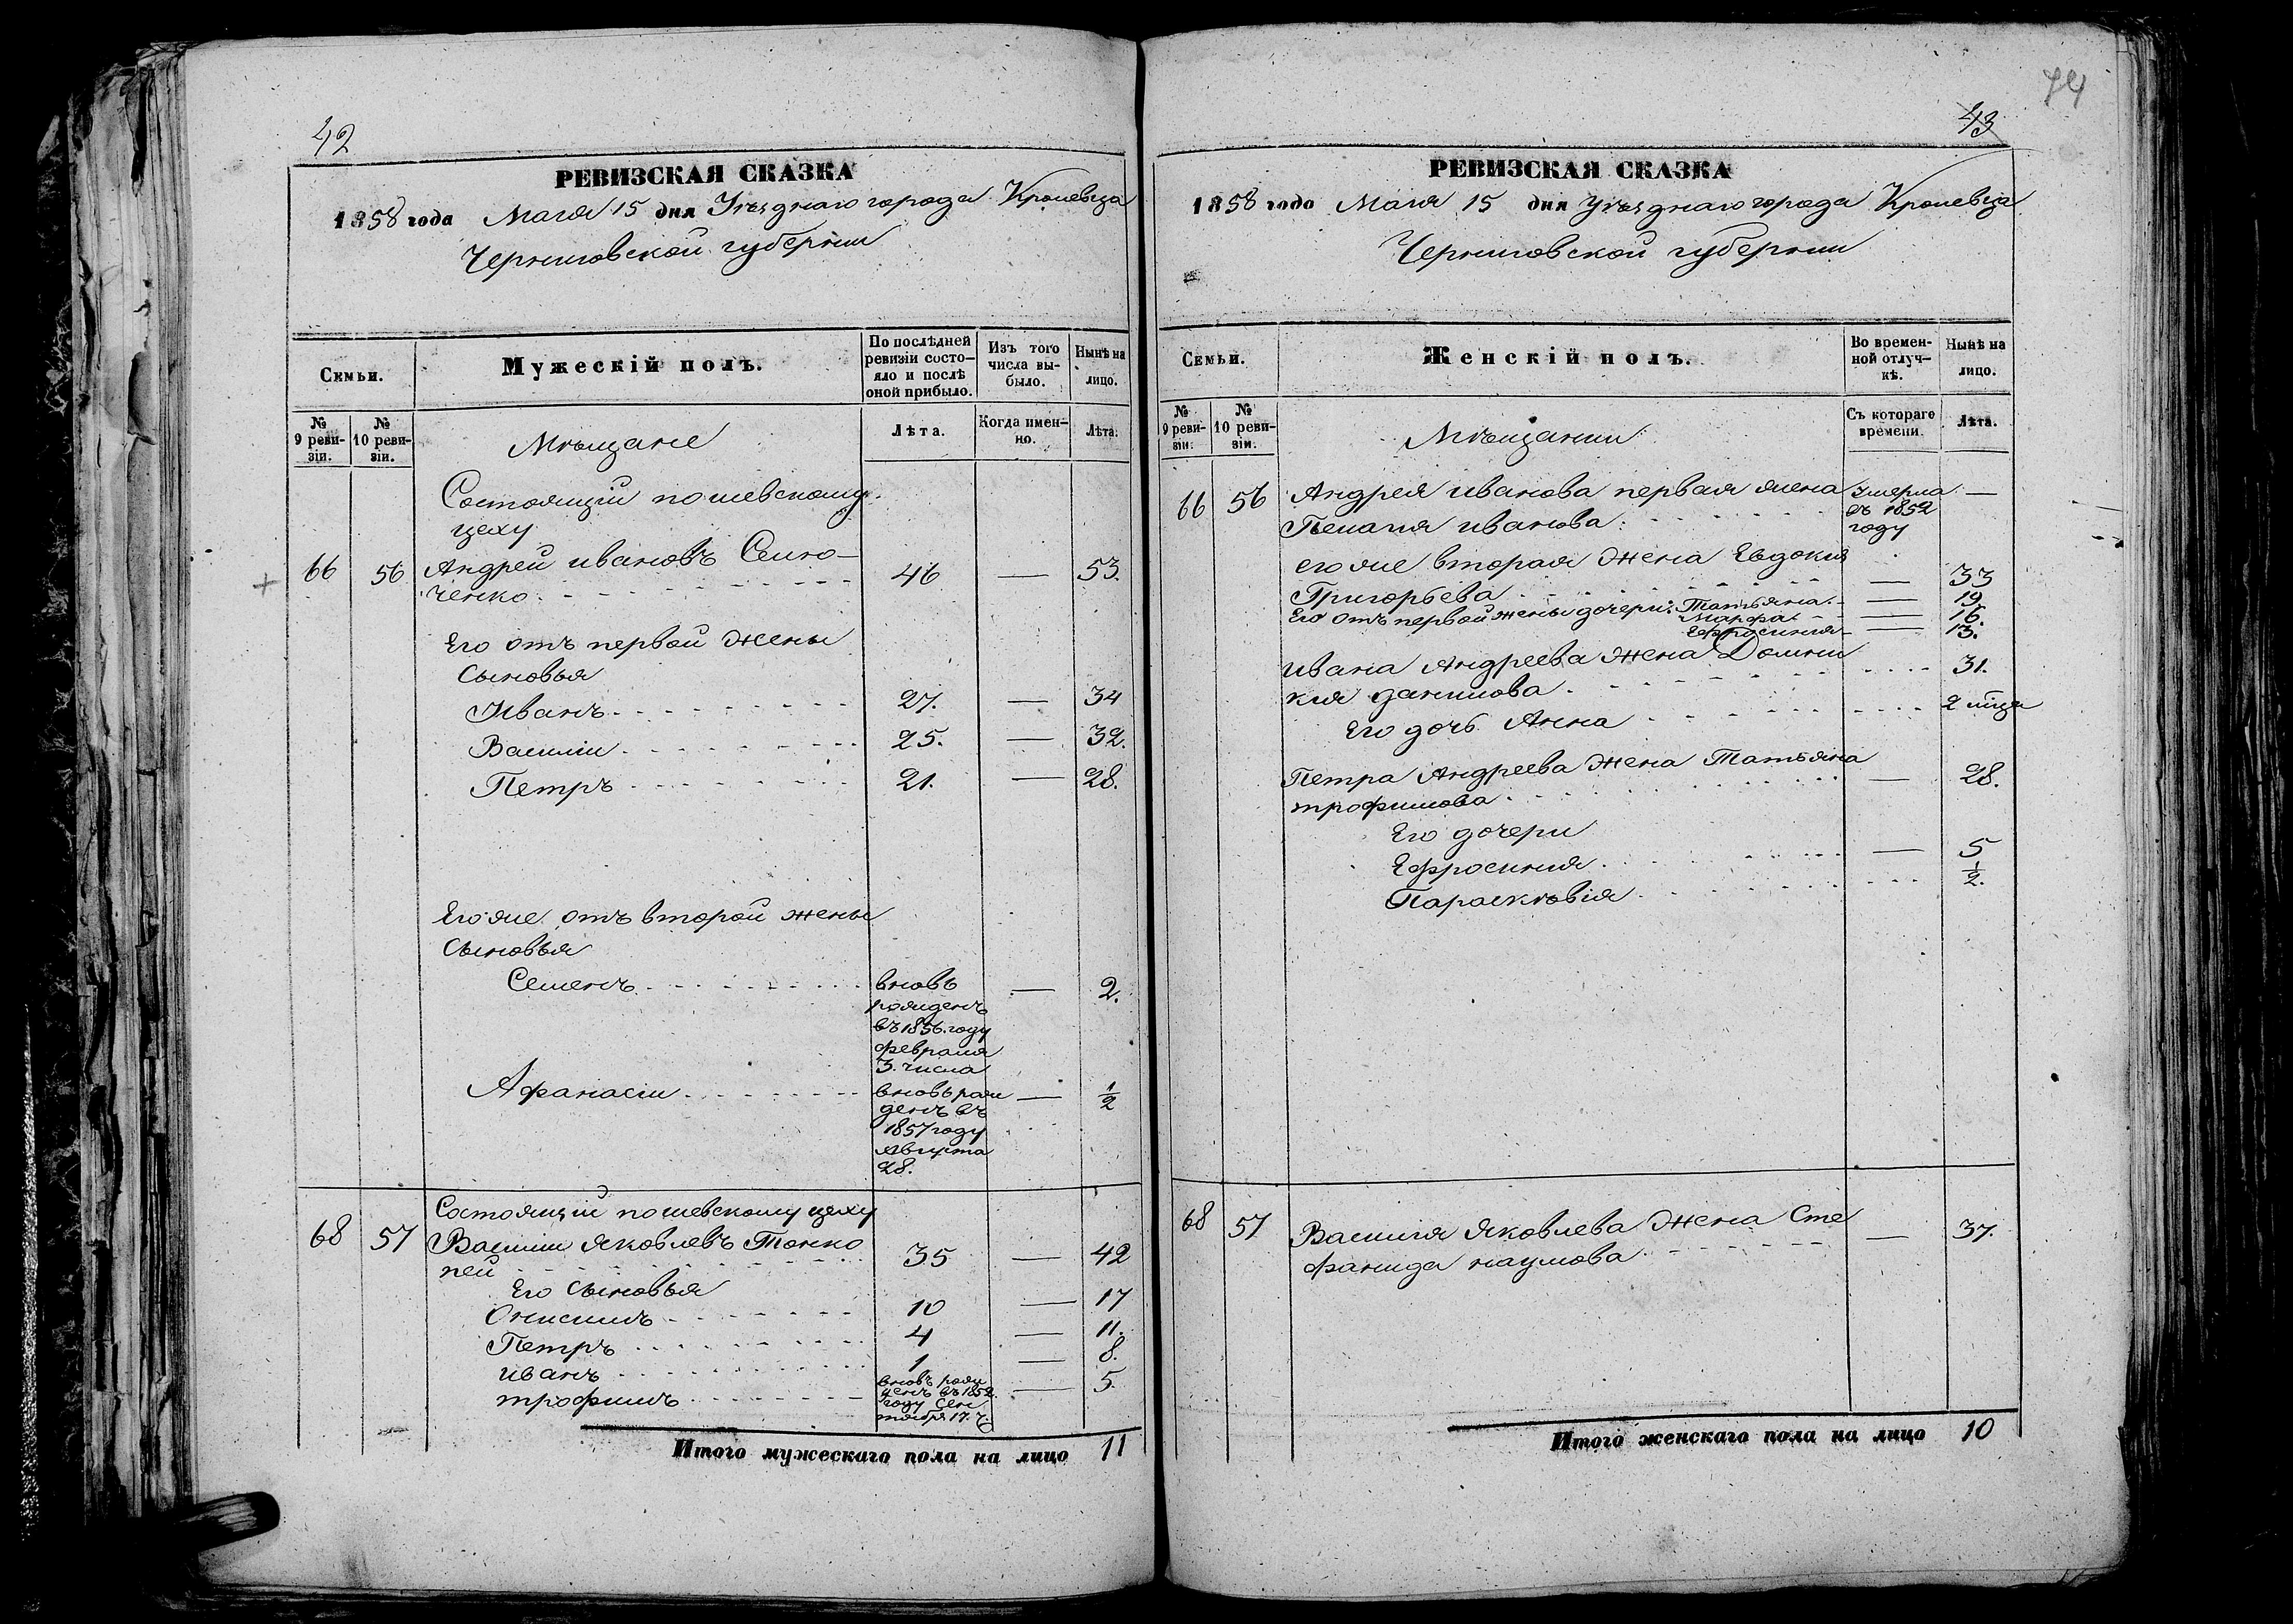 42
РЕВИЗСКАЯ СКАЗКА
1858 года Маія 15 дня Уѣзднаго города Кролевца
Черниговской губерніи
Семьи.
Мужескій полъ.
По послѣдней ревизіи состо-
яло и послѣ
оной прибыло.
Изъ того
числа вы-
было.
Нынѣ на
лицо.
№
9 реви-
зіи.
№
10 реви-
зіи.
Мѣщане
Лѣта.
Когда имен-
но.
Лѣта.
Состоящій по шевскому
цеху
66 56 Андрей ивановъ Сеню-
ченко 46 — 53.
Его отъ первой жены
Сыновья
Иванъ 27. — 34
Василій 25. — 32.
Петръ 21. — 28.
Его же отъ второй жены
Сыновья
Семенъ вновь — 2.
рожденъ
въ 1856. году
февраля
3. числа
Афанасій вновь рож — 1/2
денъ въ
1857 году
Августа
28.
Состоящій по шевскому цеху
68 57 Василій Яковлевъ Тонко
пей 35 — 42
Его Сыновья
Онисимъ 10 — 17
Петръ 4 — 11.
иванъ 1 — 8.
трофимъ вновь рож — 5.
денъ въ 1852
году Сен
тября 17. ч.
Итого мужескаго пола на лицо 11
74
43
РЕВИЗСКАЯ СКАЗКА
1858 года Маія 15 дня Уѣзднаго города Кролевца
Черниговской губерніи
Семьи.
Женскій полъ.
Во времен-
ной отлуч-
кѣ.
Нынѣ на
лицо.
№
9 реви-
зіи.
№
10 реви-
зіи.
Мѣщанки
Съ котораго
времени.
Лѣта.
66 56 Андрея иванова первая жена Умерла —
Пелагія иванова въ 1852
году
его же вторая жена Евдокія
Григорьева — 33
Его отъ первой жены дочери: Татьяна — 19
Марфа — 16.
Ефросинія — 13.
ивана Андреева жена Домни
кія данилова 31.
Его дочь Анна 2 м͠ца
Петра Андреева жена Татьяна
трофимова — 28.
Его дочери
Ефросинія — 5
Параскковія 1/2.
68 57 Василія Яковлева жена Сте
фанида наумова — 37.
Итого женскаго пола на лицо 10